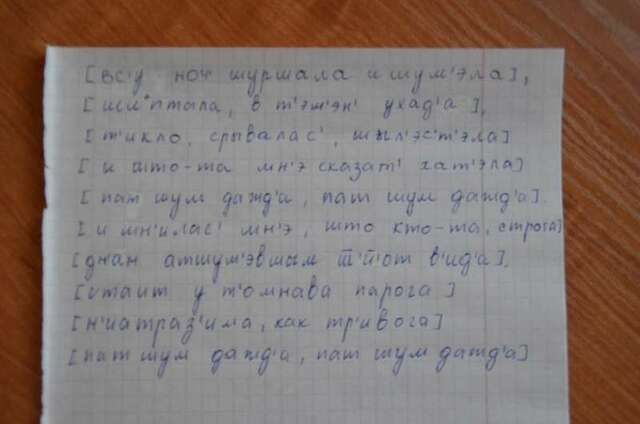 [вс'у ноч шуршала и шум'эла],
[шыл'птала, в т'эм'эн' ухад'а],
[т'икло, срывалас', шыл'эст'эла]
[и што-та мн'э сказат' хат'эла]
[пат шум дажд'а, пат шум дажд'а].
[и мн'илас' мн'э, што кто-та, строга]
[дн'ам атшум'эвшым й'от в'ид'а].
[стаит у т'омнава парога]
[н'иатраз'има, как тр'ивога]
[пат шум дажд'а, пат шум дажд'а]